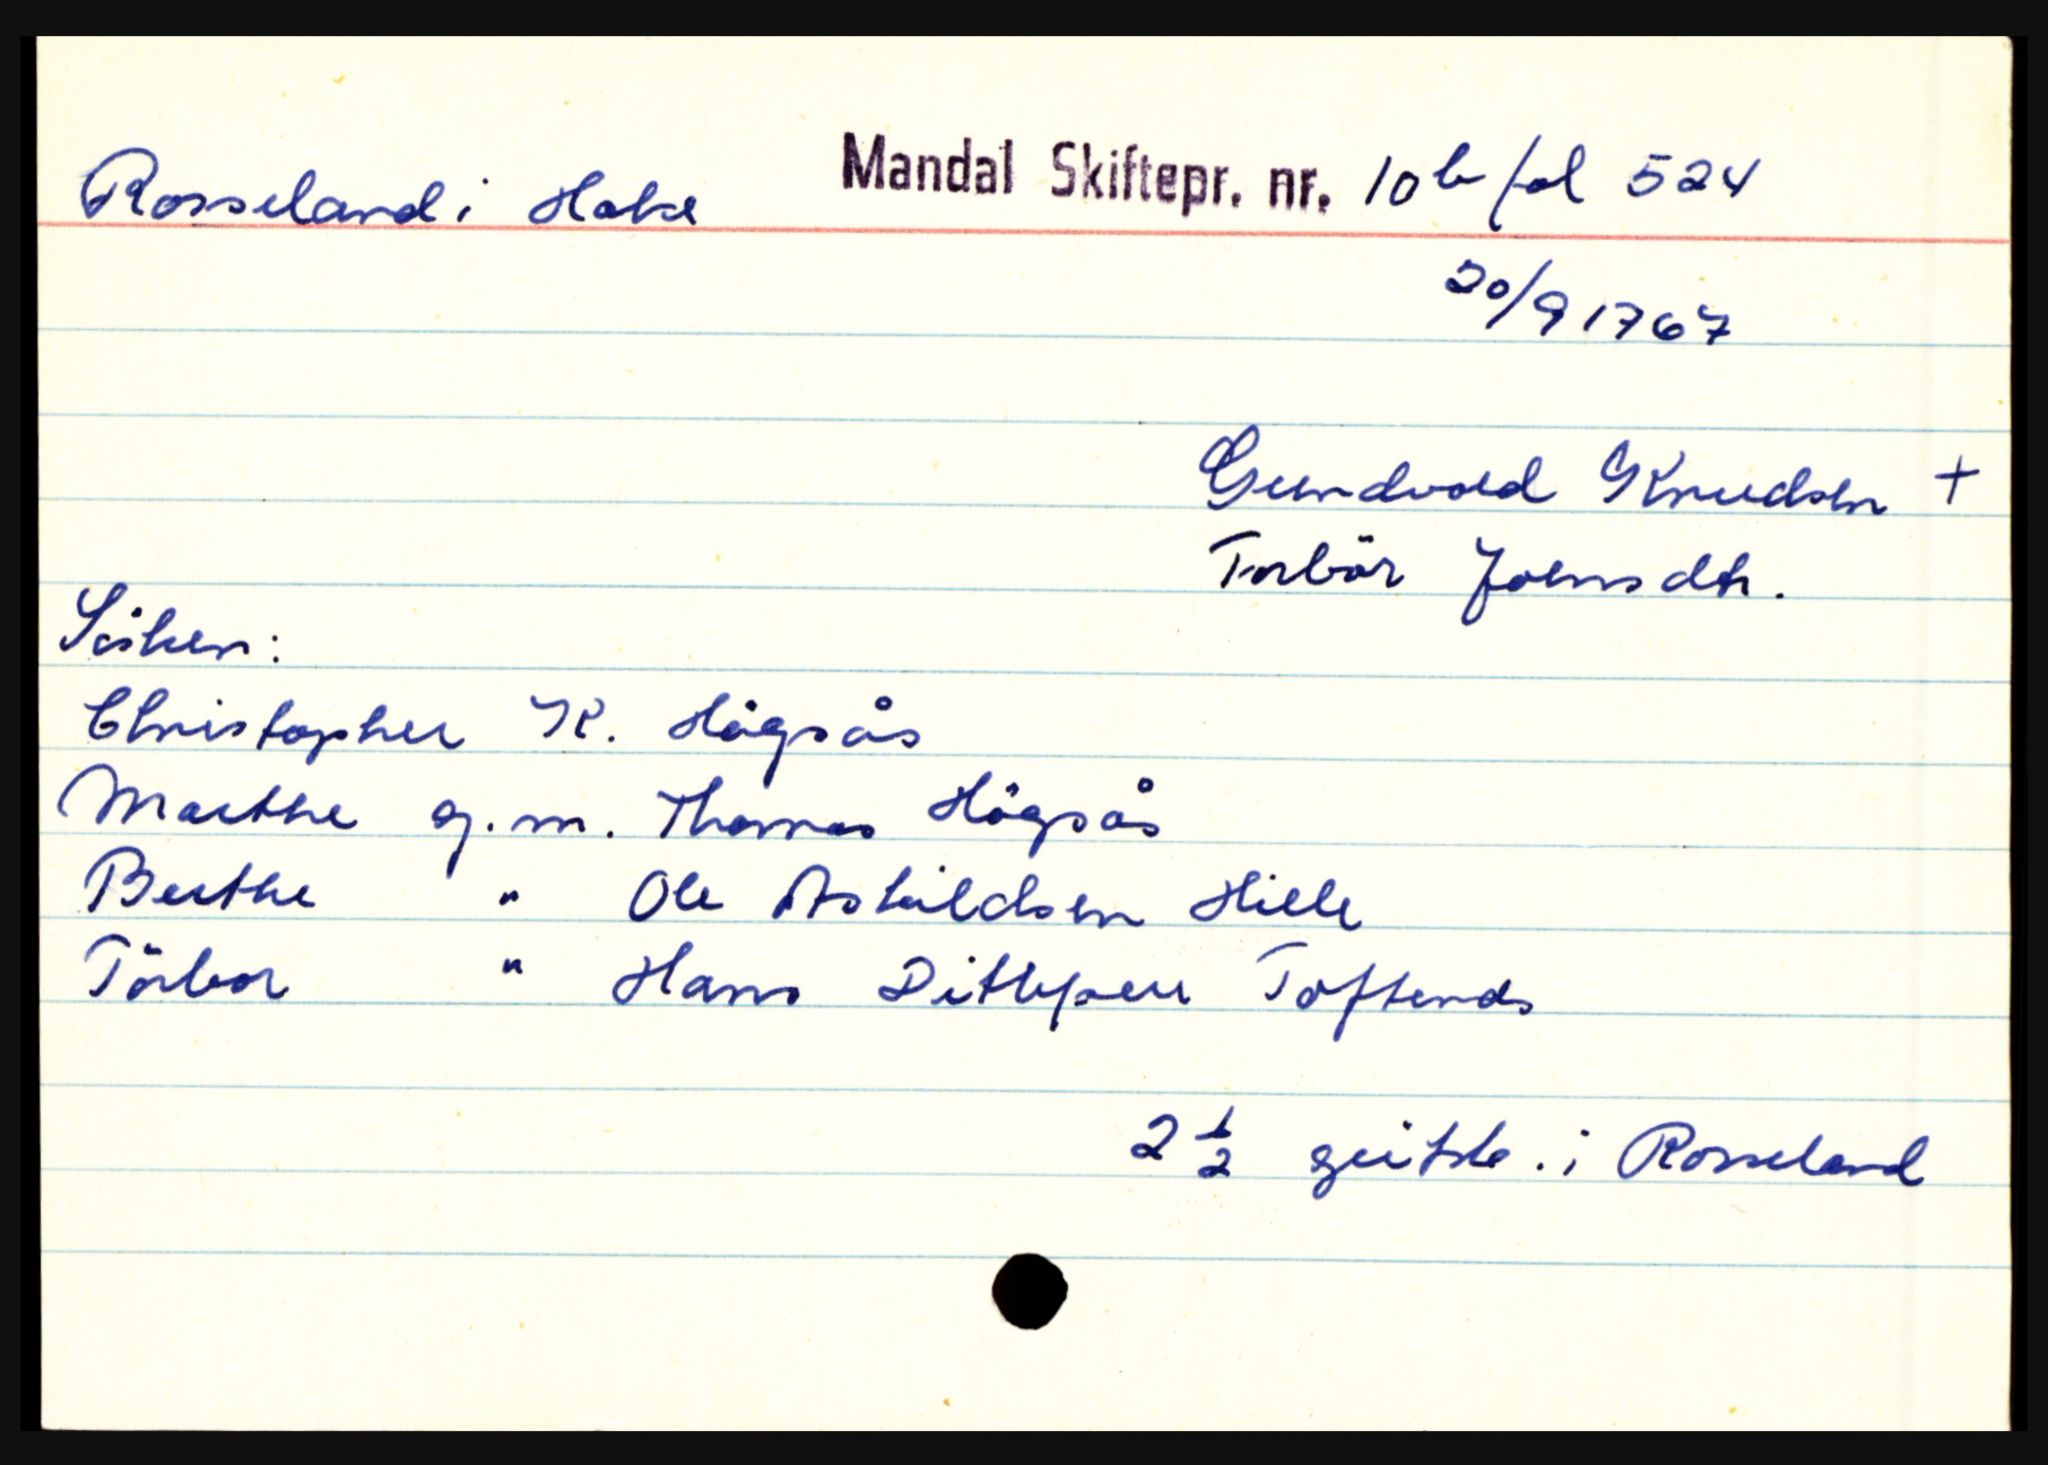 Rosseland i Halse Mandal Skiftepr. nr. 10 b fol 524
20/9 1767
Gundvald Knudsen +
Torbör Joensdtr.
Sösken:
Christopher K. Högsås
Marthe g.m. Thomas Högsås
Berthe " Ole Askildsen Hille
Törbor " Hans Ditlefsen Toftenes
2 1/2 i Rosseland